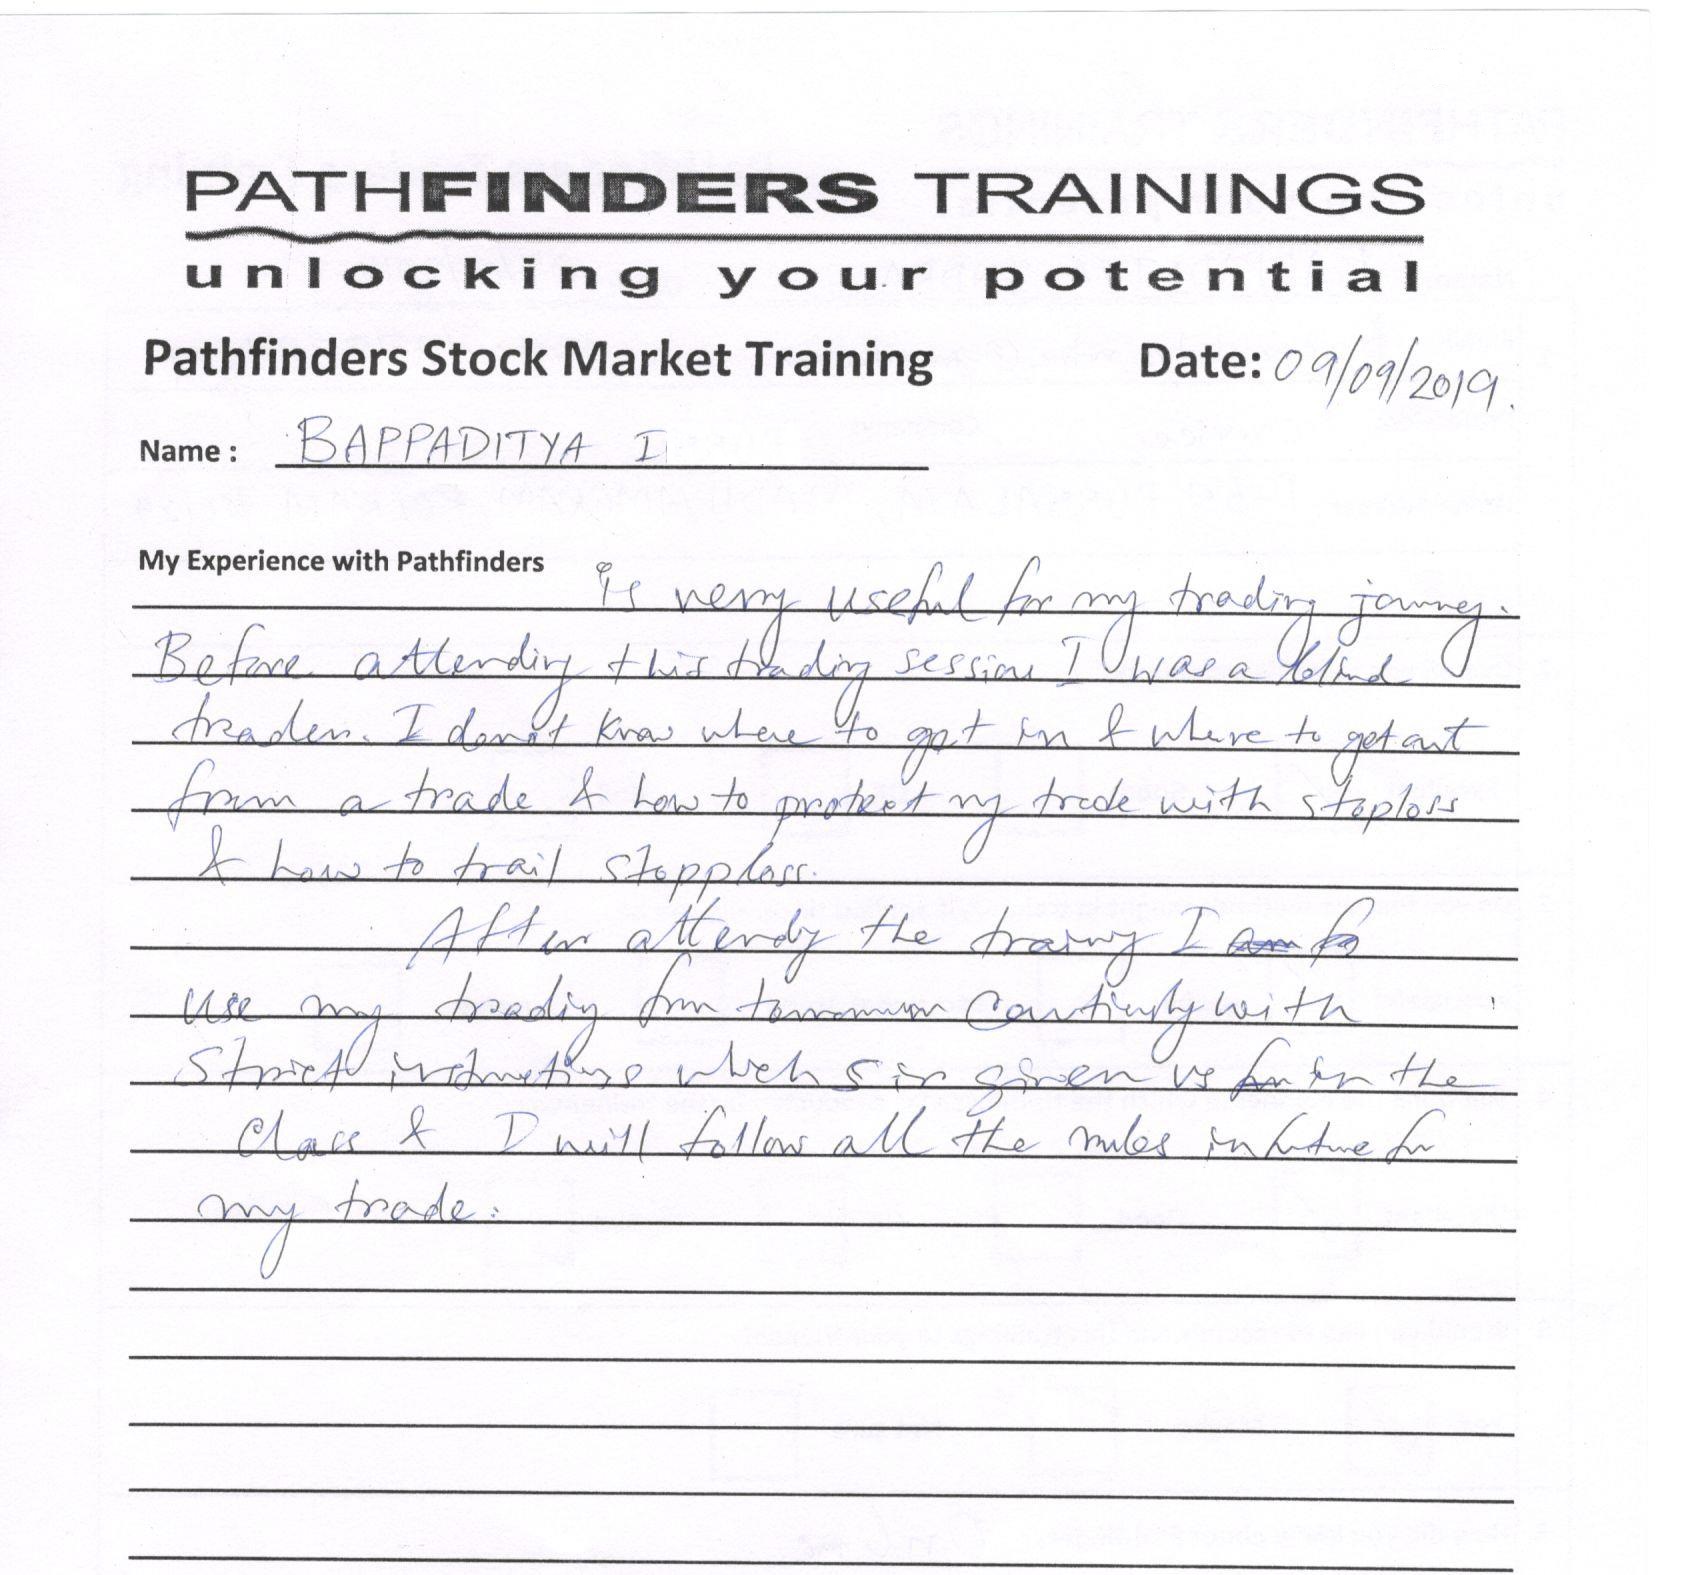 PATHFINDERS TRAININGS
unlocking your potential
Pathfinders Stock Market Training Date: 09/09/2019.
Name : BAPPADITYA I
My Experience with Pathfinders
is very useful for my trading journey.
Before attending this trading session I was a blind
trader. I donot know where to get in & where to get out
from a trade & how to protect my trade with stoploss
& how to trail stopploss.
After attendy the trainy I
use my trading from tomorrow cautiusly with
strict instructions which is given us in the
class & I will follow all the rules in future for
my trade.